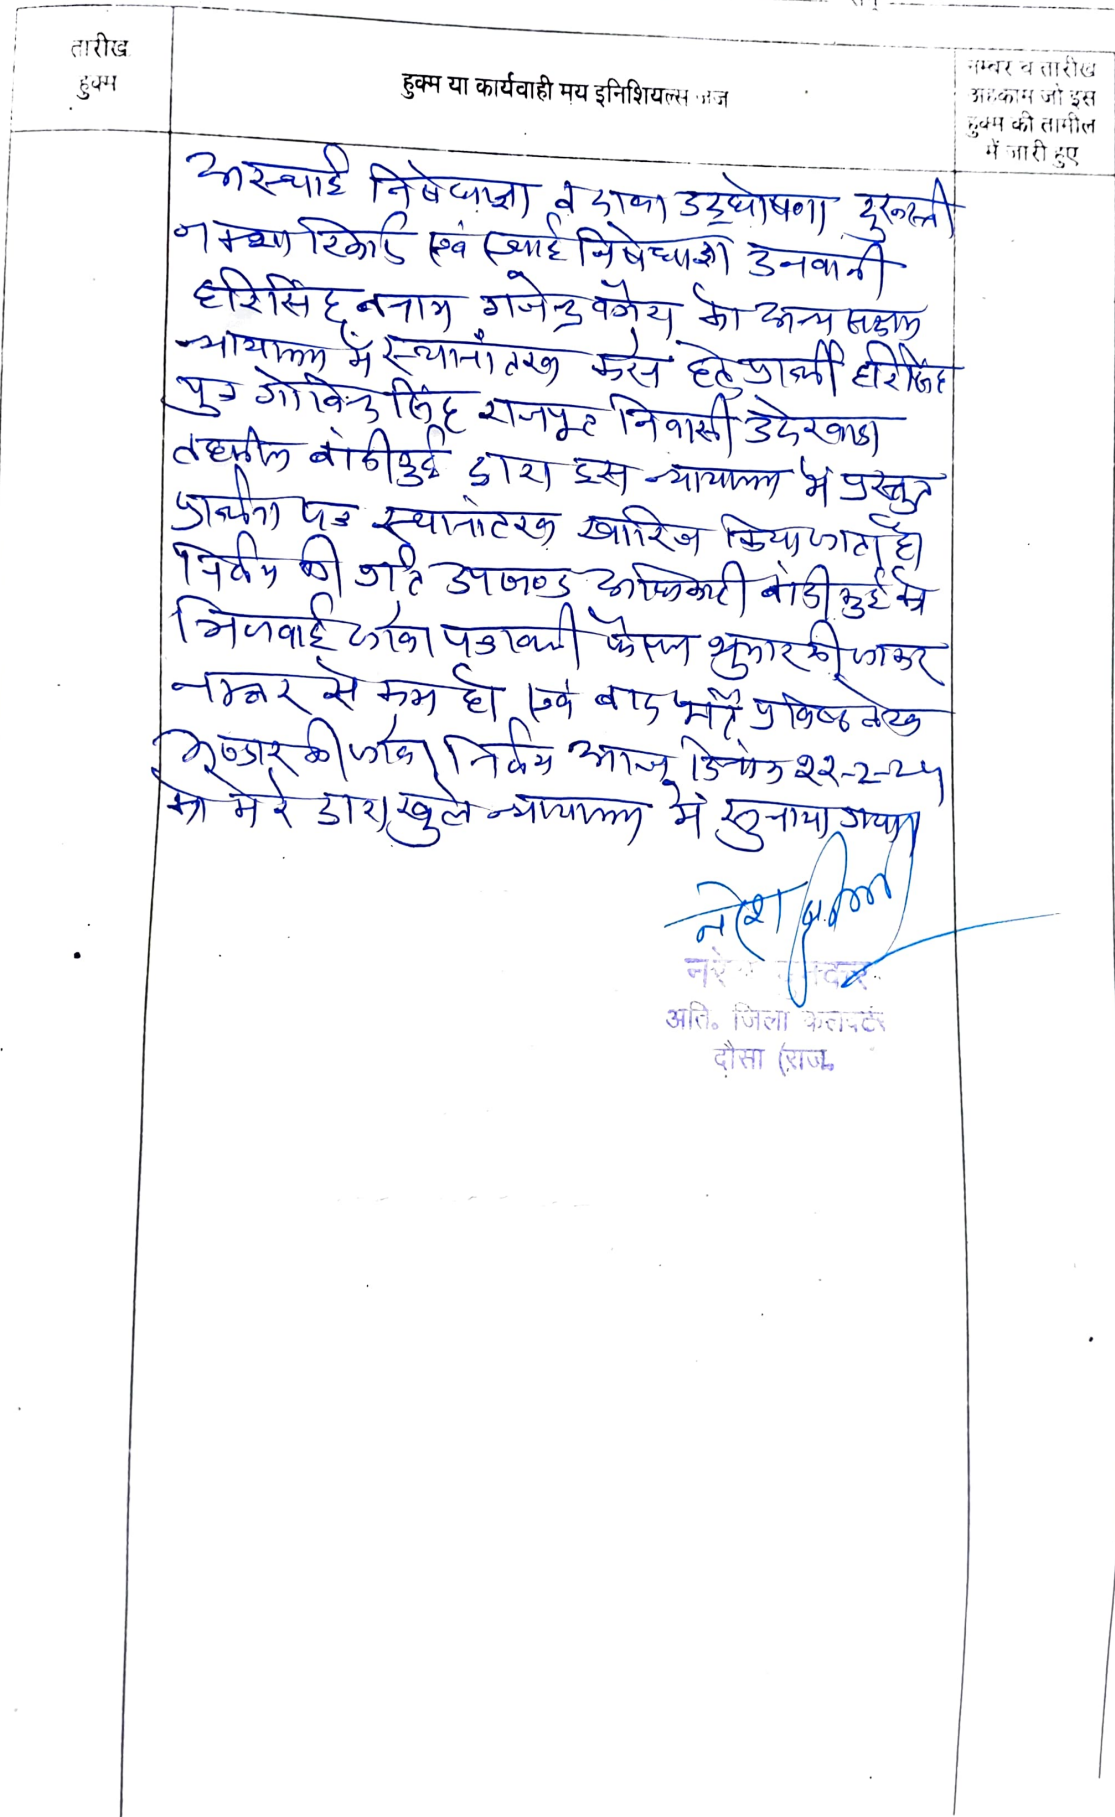 तारीख
हुक्म
हुक्म या कार्यवाही मय इनिशियल्स जज
नम्बर व तारीख
अहकाम जो इस
हुक्म की तामील
में जारी हुए
अस्थाई निषेधाज्ञा व दावा उद्घोषणा दुरूस्ती
नक्शा रिकॉर्ड एवं स्थाई निषेधाज्ञा उनवानी
हरिसिंह बनाम गजेन्द्र वगैरा को अन्य सक्षम
न्यायालय में स्थानांतरण करने हेतु प्रार्थी हरिसिंह
पुत्र गोविन्द सिंह राजपूत निवासी
तहसील बांदीकुई द्वारा इस न्यायालय में प्रस्तुत
प्रार्थना पत्र स्थानांतरण खारिज किया जाता है।
निर्णय की प्रति उपखण्ड अधिकारी बांदीकुई को
भिजवाई जावे। पत्रावली फैसल शुमार की जाकर
नम्बर से कम हो एवं बाद प्रविष्ठ लेख
भण्डार की जावे। निर्णय आज दिनांक 22-2-24
को मेरे द्वारा खुले न्यायालय में सुनाया गया।
नरेश
अति. जिला कलक्टर
दौसा (राज.